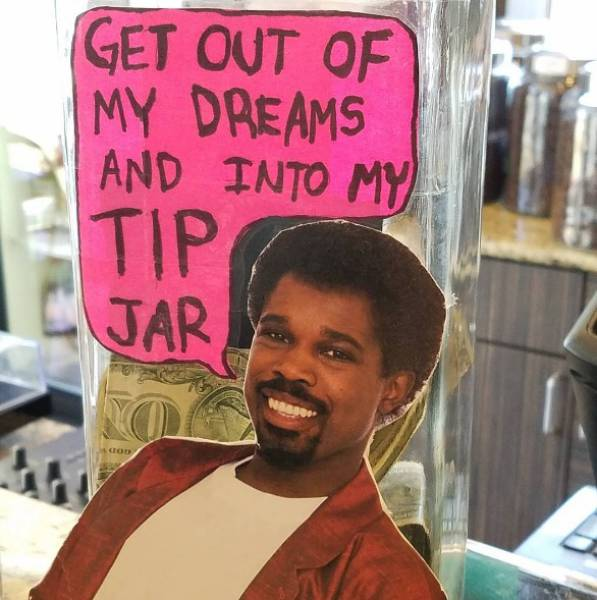 GET OUT OF
MY DREAMS
AND INTO MY
TIP
JAR